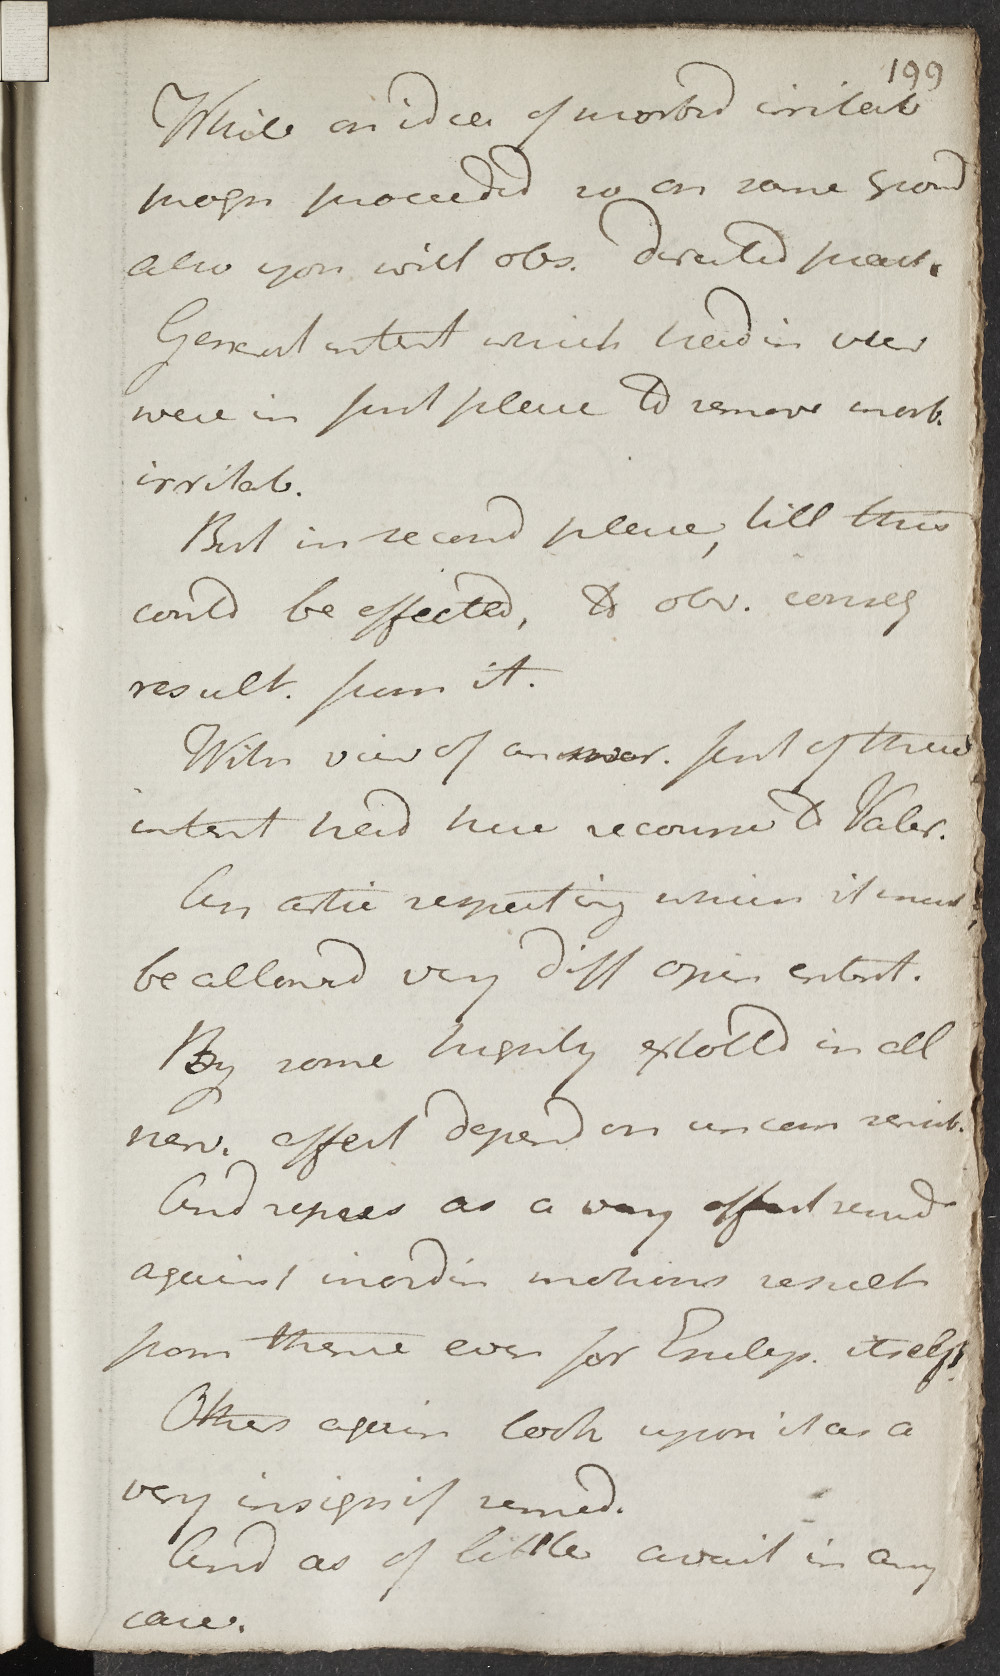 199
While on idea of morbid irritab
progn proceeded so on same ground
also you will obs. directed pract.
General intent which had in view
were in first place to remove morb.
irritab.
But in second place, till this
could be effected, to obv. conseq
result. from it.
With view of answer. first of these
intent had here recourse to Valer.
An artic respecting which it must
be allowed very diff opin entert.
By some highly extolld in all
nerv. affect depend on uncom sensib.
And repres as a very effect remed
against inordin motions result
from thence even for Epilep. itself.
Others again look upon it as a
very insignif remed.
And as of little avail in any
case.